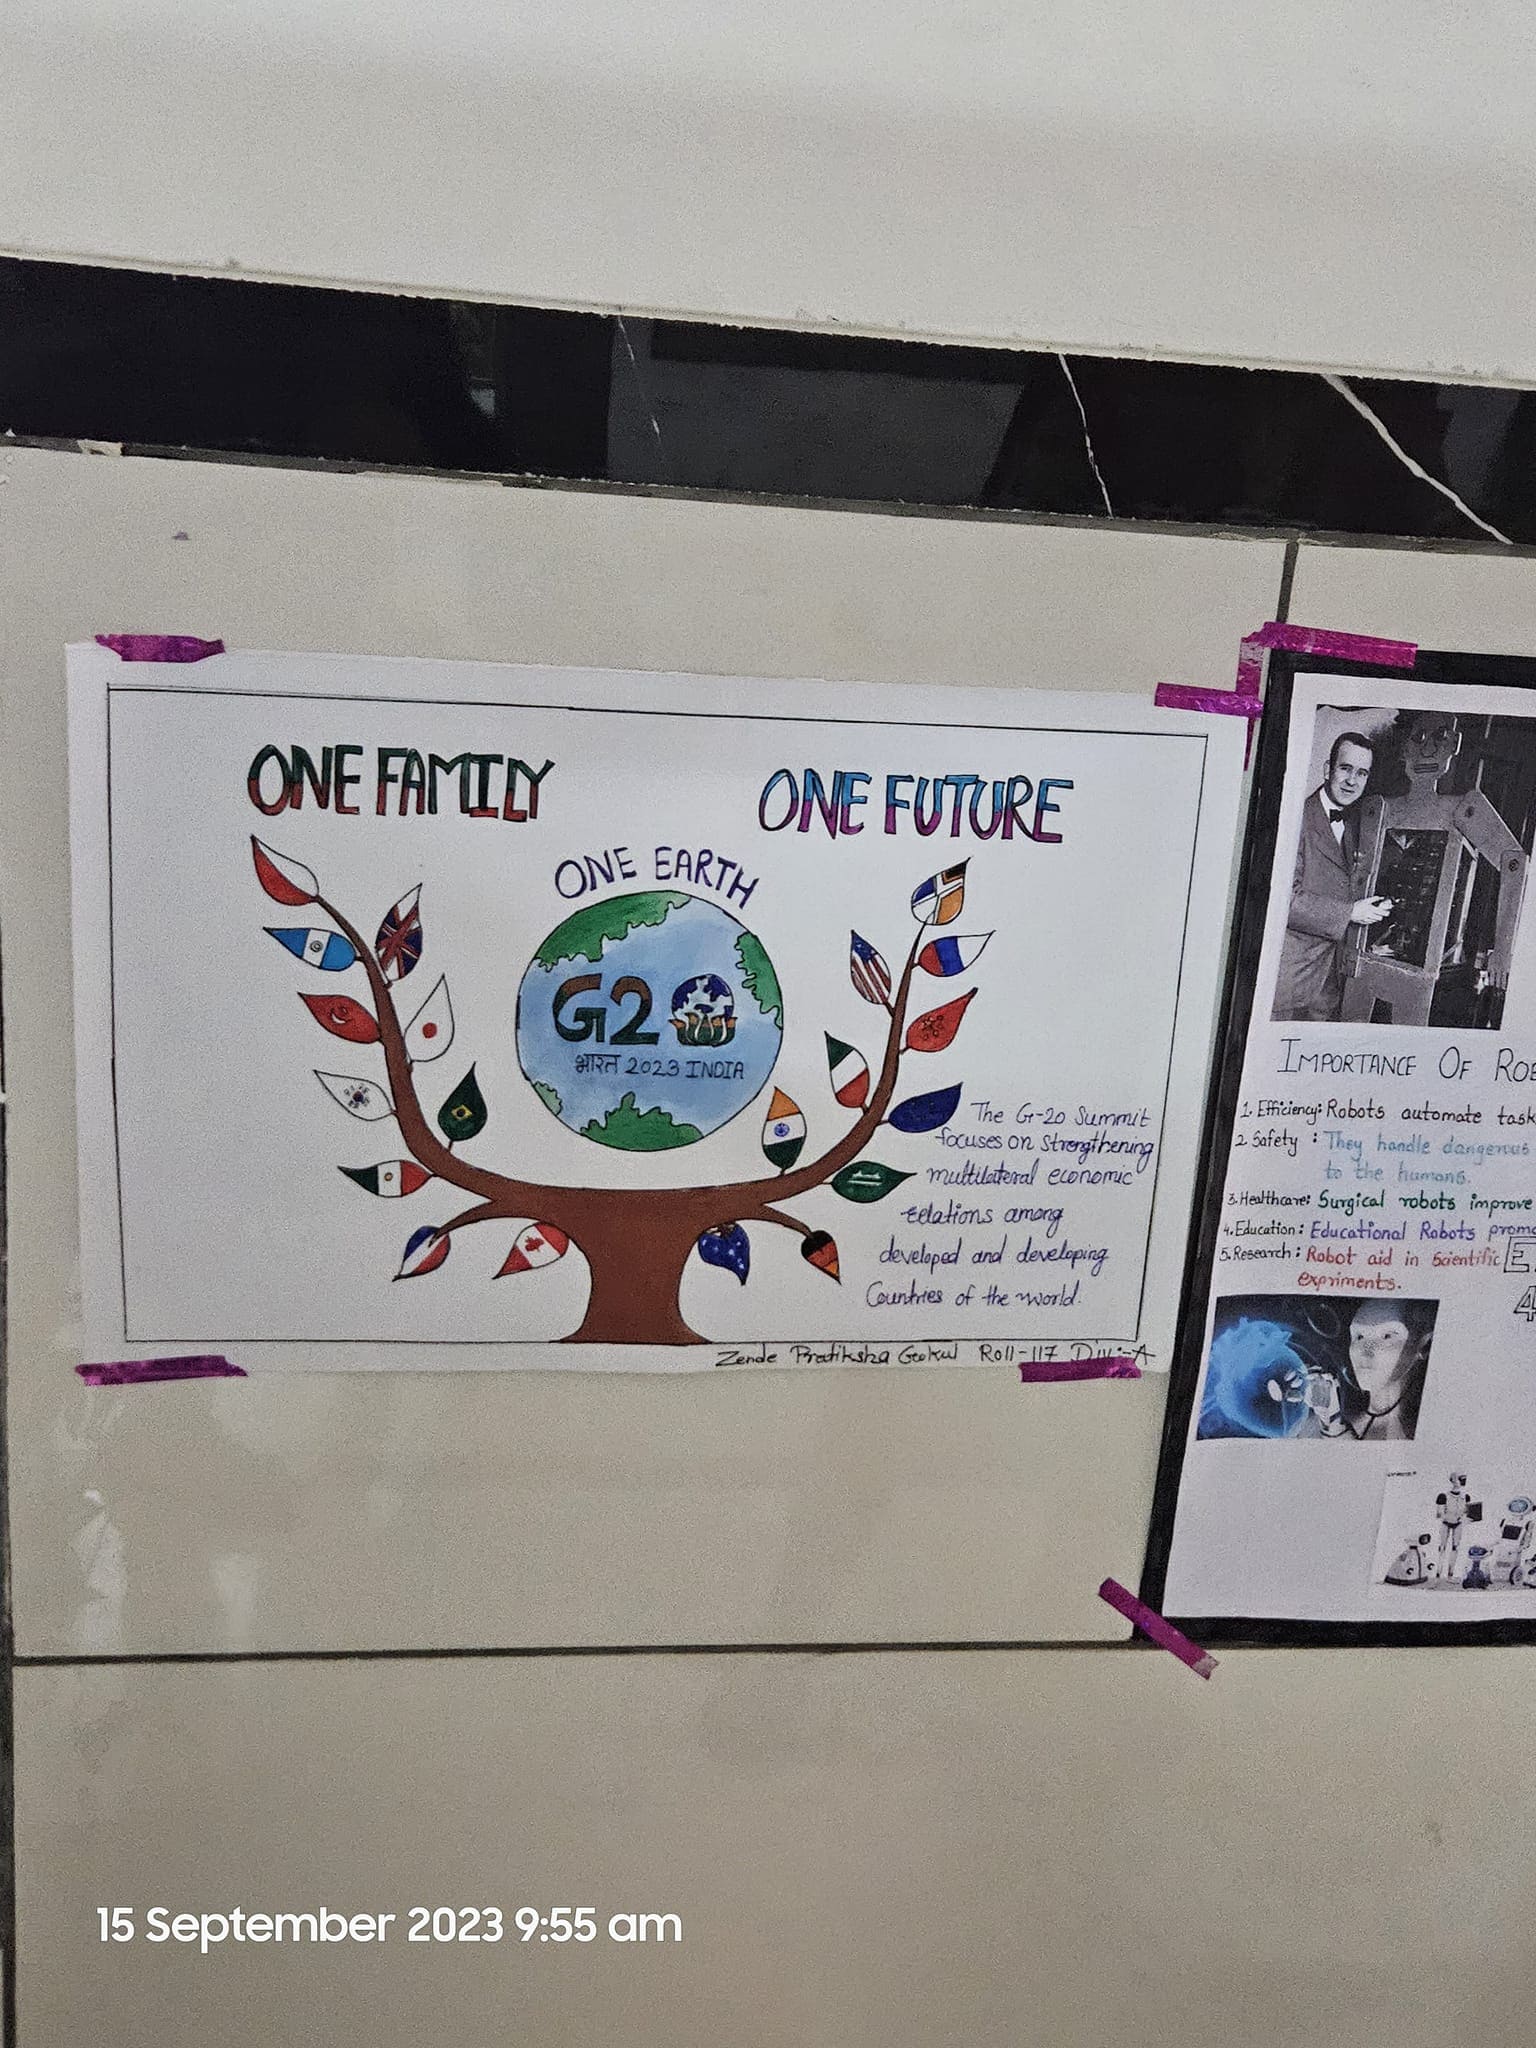 ONE FAMILY
ONE FUTURE
ONE EARTH
G20
भारत 2023 INDIA
The G-20 Summit
focuses on strengthening
multilateral economic
relations among
developed and developing
Countries of the world.
Zende Pratiksha Gokul Roll-117 Div:-A
IMPORTANCE OF ROB
1. Efficiency: Robots automate task
2 Safety : They handle dangerous
to the humans.
3. Healthcare: Surgical robots improve
4. Education : Educational Robots promo
5. Research : Robot aid in Scientific
expriments.
15 September 2023 9:55 am